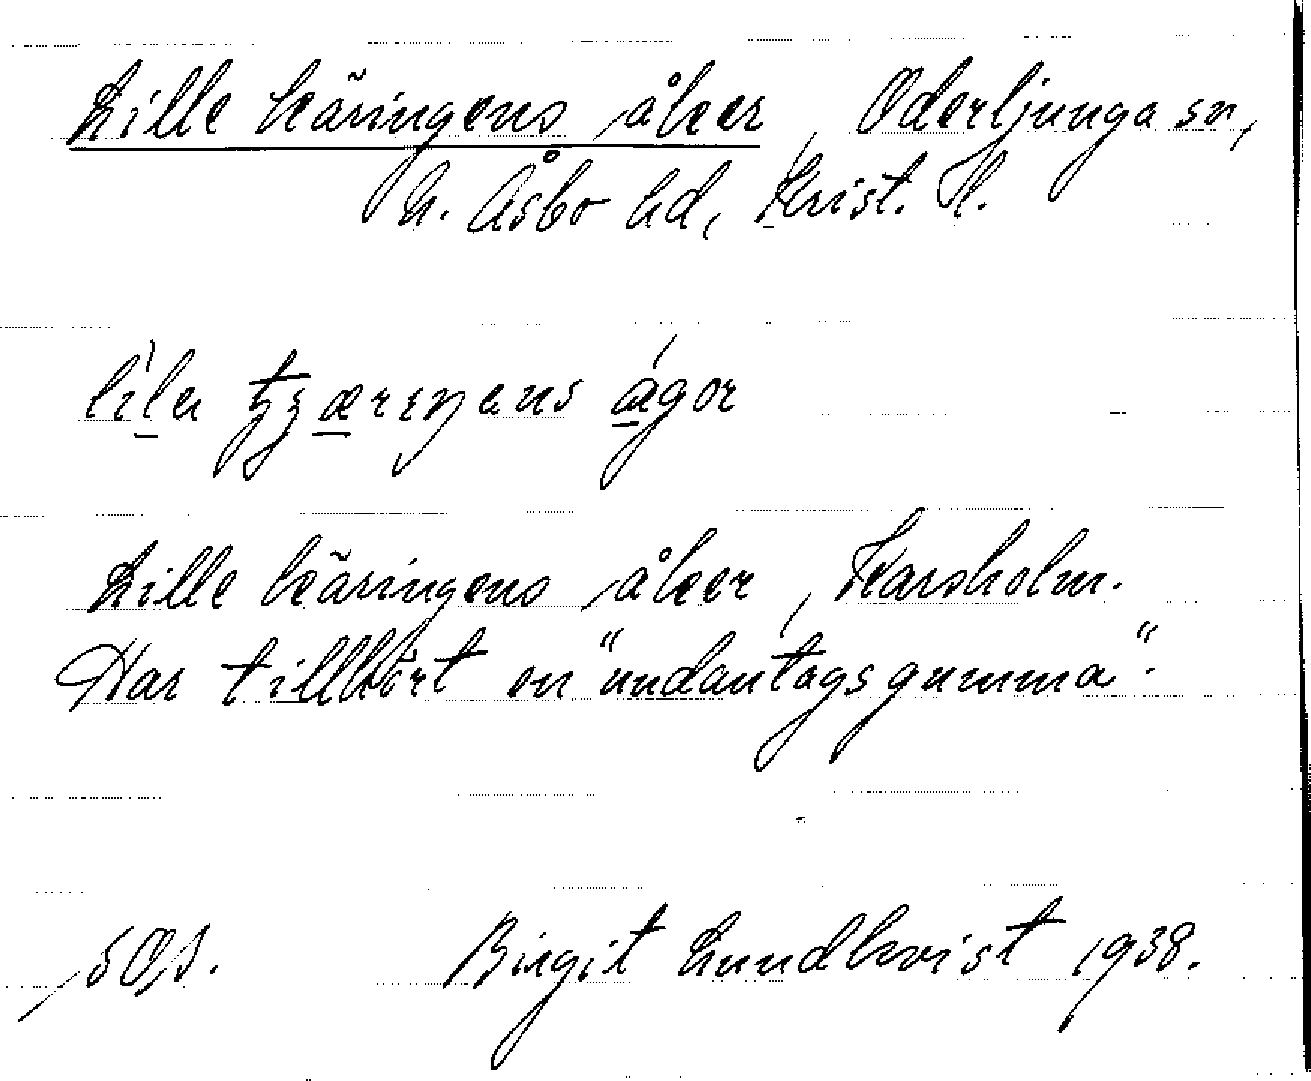 Lille käringens åker, Oderljunga sn,
N. Åsbo hd, Krist. l.
Lille käringens åker, Karsholm.
Har tillhört en "undantagsgumma".
Birgit Lundkvist 1938.